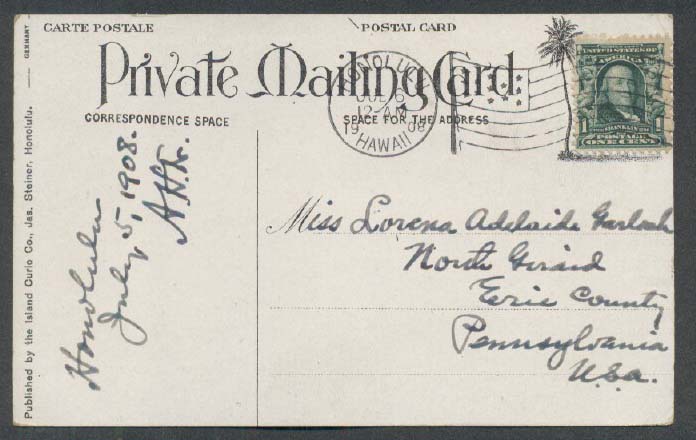 CARTE POSTALE
POSTAL CARD
Private Mailing Card.
CORRESPONDENCE SPACE
SPACE FOR THE ADDRESS
HONOLULU
JUL 6
12-AM
1908
HAWAII
UNITED STATES OF
AMERICA
FRANKLIN
1 1
POSTAGE
ONE CENT
Honolulu
July 5, 1908.
Miss Lorena Adelaide
North Girard
Erie County
Pennsylvania
U.S.a.
Published by the Island Curio Co., Jas. Steiner, Honolulu.
GERMANY